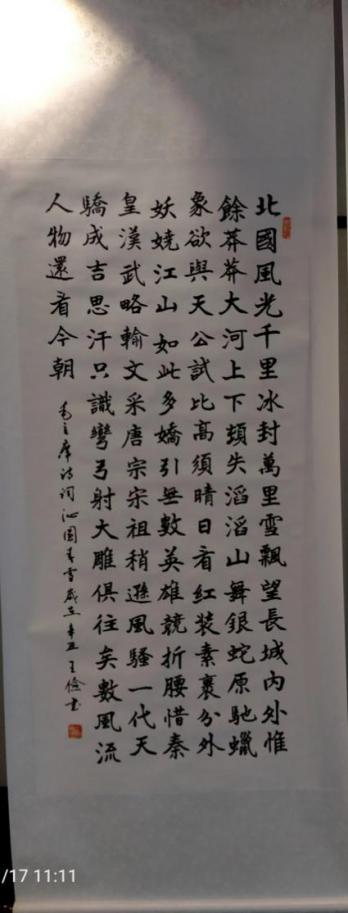 北國風光千里冰封萬里雪飄望長城內外惟
餘莽莽大河上下頓失滔滔山舞銀蛇原馳蠟
象欲與天公試比高須晴日看紅裝素裹分外
妖嬈江山如此多嬌引無數英雄競折腰惜秦
皇漢武略輸文采唐宗宋祖稍遜風騷一代天
驕成吉思汗只識彎弓射大雕俱往矣數風流
人物還看今朝
毛主席诗词沁園春雪歲在辛丑王俭书
/17 11:11